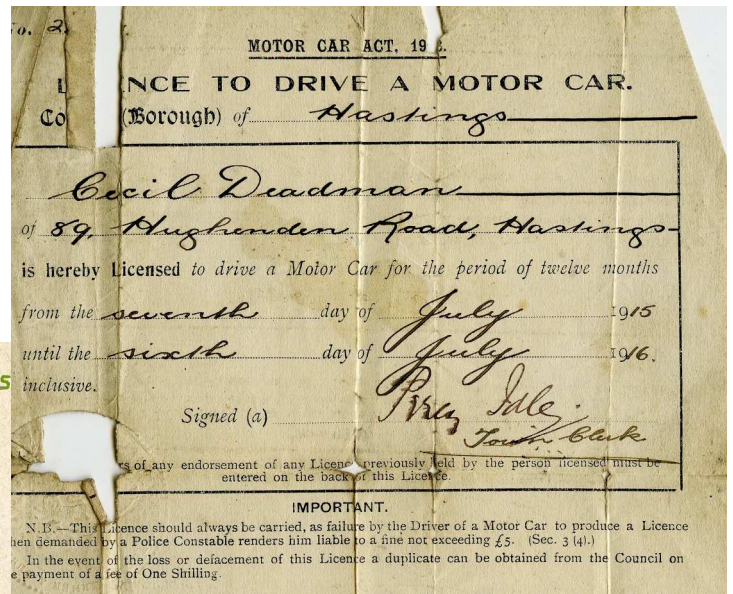 No. 2
MOTOR CAR ACT, 19
L NCE TO DRIVE A MOTOR CAR.
Co (Borough) of Hastings
Cecil Deadman
of 89, Hughenden Road, Hastings
is hereby Licensed to drive a Motor Car for the period of twelve months
from the seventh day of July 1915
until the sixth day of July 1916.
inclusive.
Signed (a) Percy Idle.
Town Clerk
rs of any endorsement of any Licence previously held by the person licensed must be
entered on the back of this Licence.
IMPORTANT.
N.B.—This Licence should always be carried, as failure by the Driver of a Motor Car to produce a Licence
hen demanded by a Police Constable renders him liable to a fine not exceeding £5. (Sec. 3 (4).)
In the event of the loss or defacement of this Licence a duplicate can be obtained from the Council on
e payment of a fee of One Shilling.
s